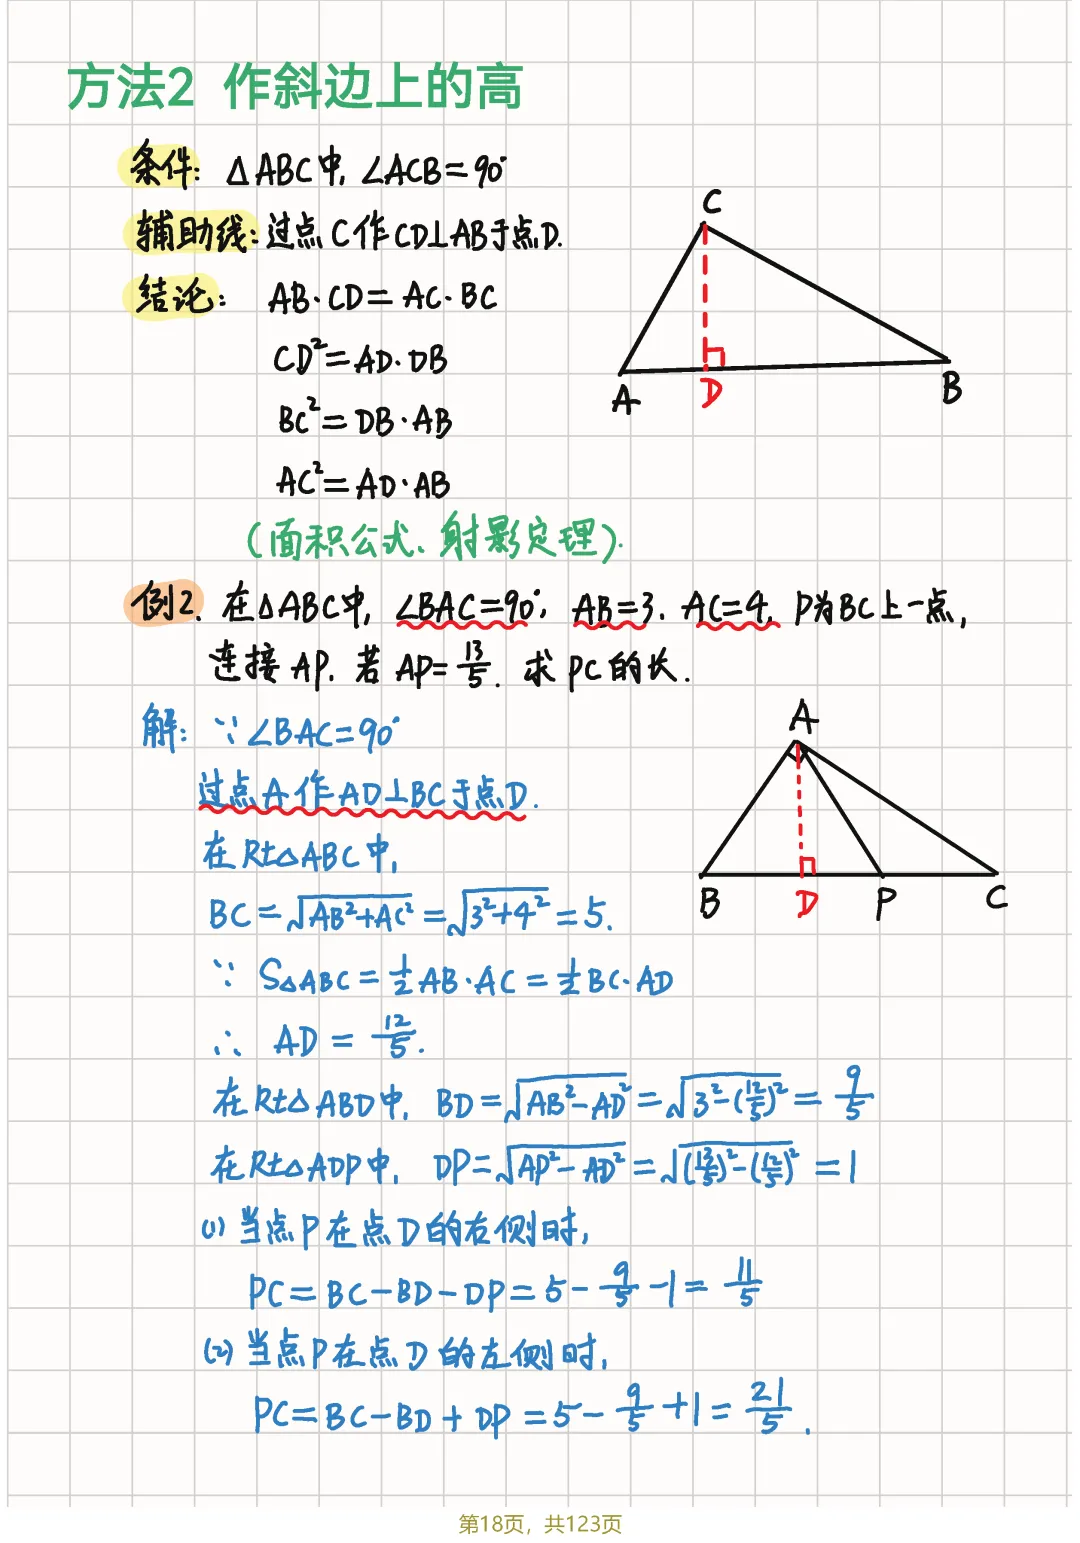 方法2 作斜边上的高
条件: △ABC中, ∠ACB=90°
辅助线: 过点C作CD⊥AB于点D.
结论: AB·CD=AC·BC
CD²=AD·DB
BC²=DB·AB
AC²=AD·AB
(面积公式、射影定理).
C
A
D
B
例2. 在△ABC中, ∠BAC=90°, AB=3. AC=4. P为BC上一点,
连接AP. 若AP=13/5. 求PC的长.
解: ∵∠BAC=90°
过点A作AD⊥BC于点D.
在Rt△ABC中,
BC=√(AB²+AC²)=√(3²+4²)=5.
∵ S△ABC=1/2AB·AC=1/2BC·AD
∴ AD=12/5.
在Rt△ABD中, BD=√(AB²-AD²)=√(3²-(12/5)²)=9/5
在Rt△ADP中, DP=√(AP²-AD²)=√((13/5)²-(12/5)²)=1
(1) 当点P在点D的右侧时,
PC=BC-BD-DP=5-9/5-1=11/5
(2) 当点P在点D的左侧时,
PC=BC-BD+DP=5-9/5+1=21/5.
A
B
D
P
C
第18页，共123页